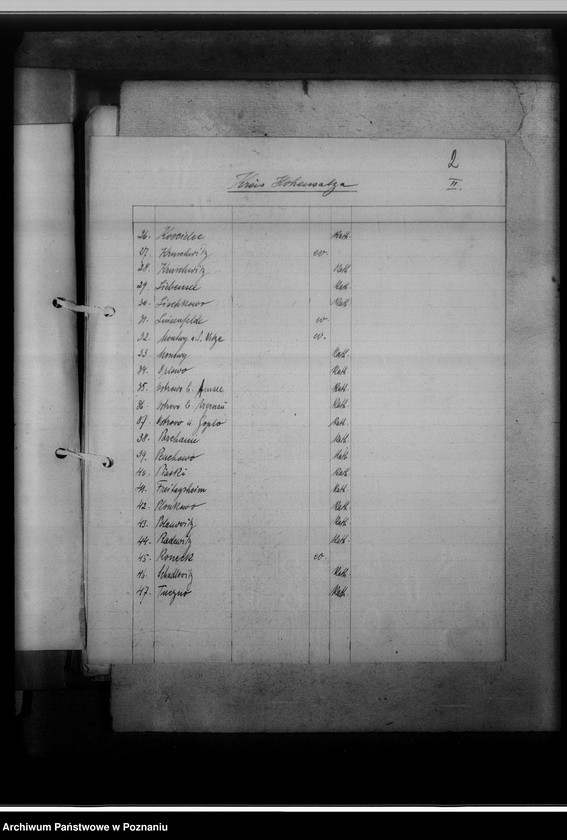 2
II.
Kreis Hohensalza
26. Koscielec Kath.
27. Kruschwitz ev.
28. Kruschwitz Kath.
29. Liebensee Kath.
30. Lischkowo Kath.
31. Luisenfelde ev.
32. Montwy a. d. Netze ev.
33. Montwy Kath.
34. Orlowo Kath.
35. Ostrowo b. Amsee Kath.
36. Ostrowo b. Kath.
37. Ostrowo a. Goplo Kath.
38. Parchanie Kath.
39. Kath.
40. Piaski Kath.
41. Freitagsheim Kath.
42. Plonkowo Kath.
43. Polanowitz Kath.
44. Radewitz Kath.
45. Roneck ev.
46. Schadlowitz Kath.
47. Tuczno Kath.
Archiwum Państwowe w Poznaniu